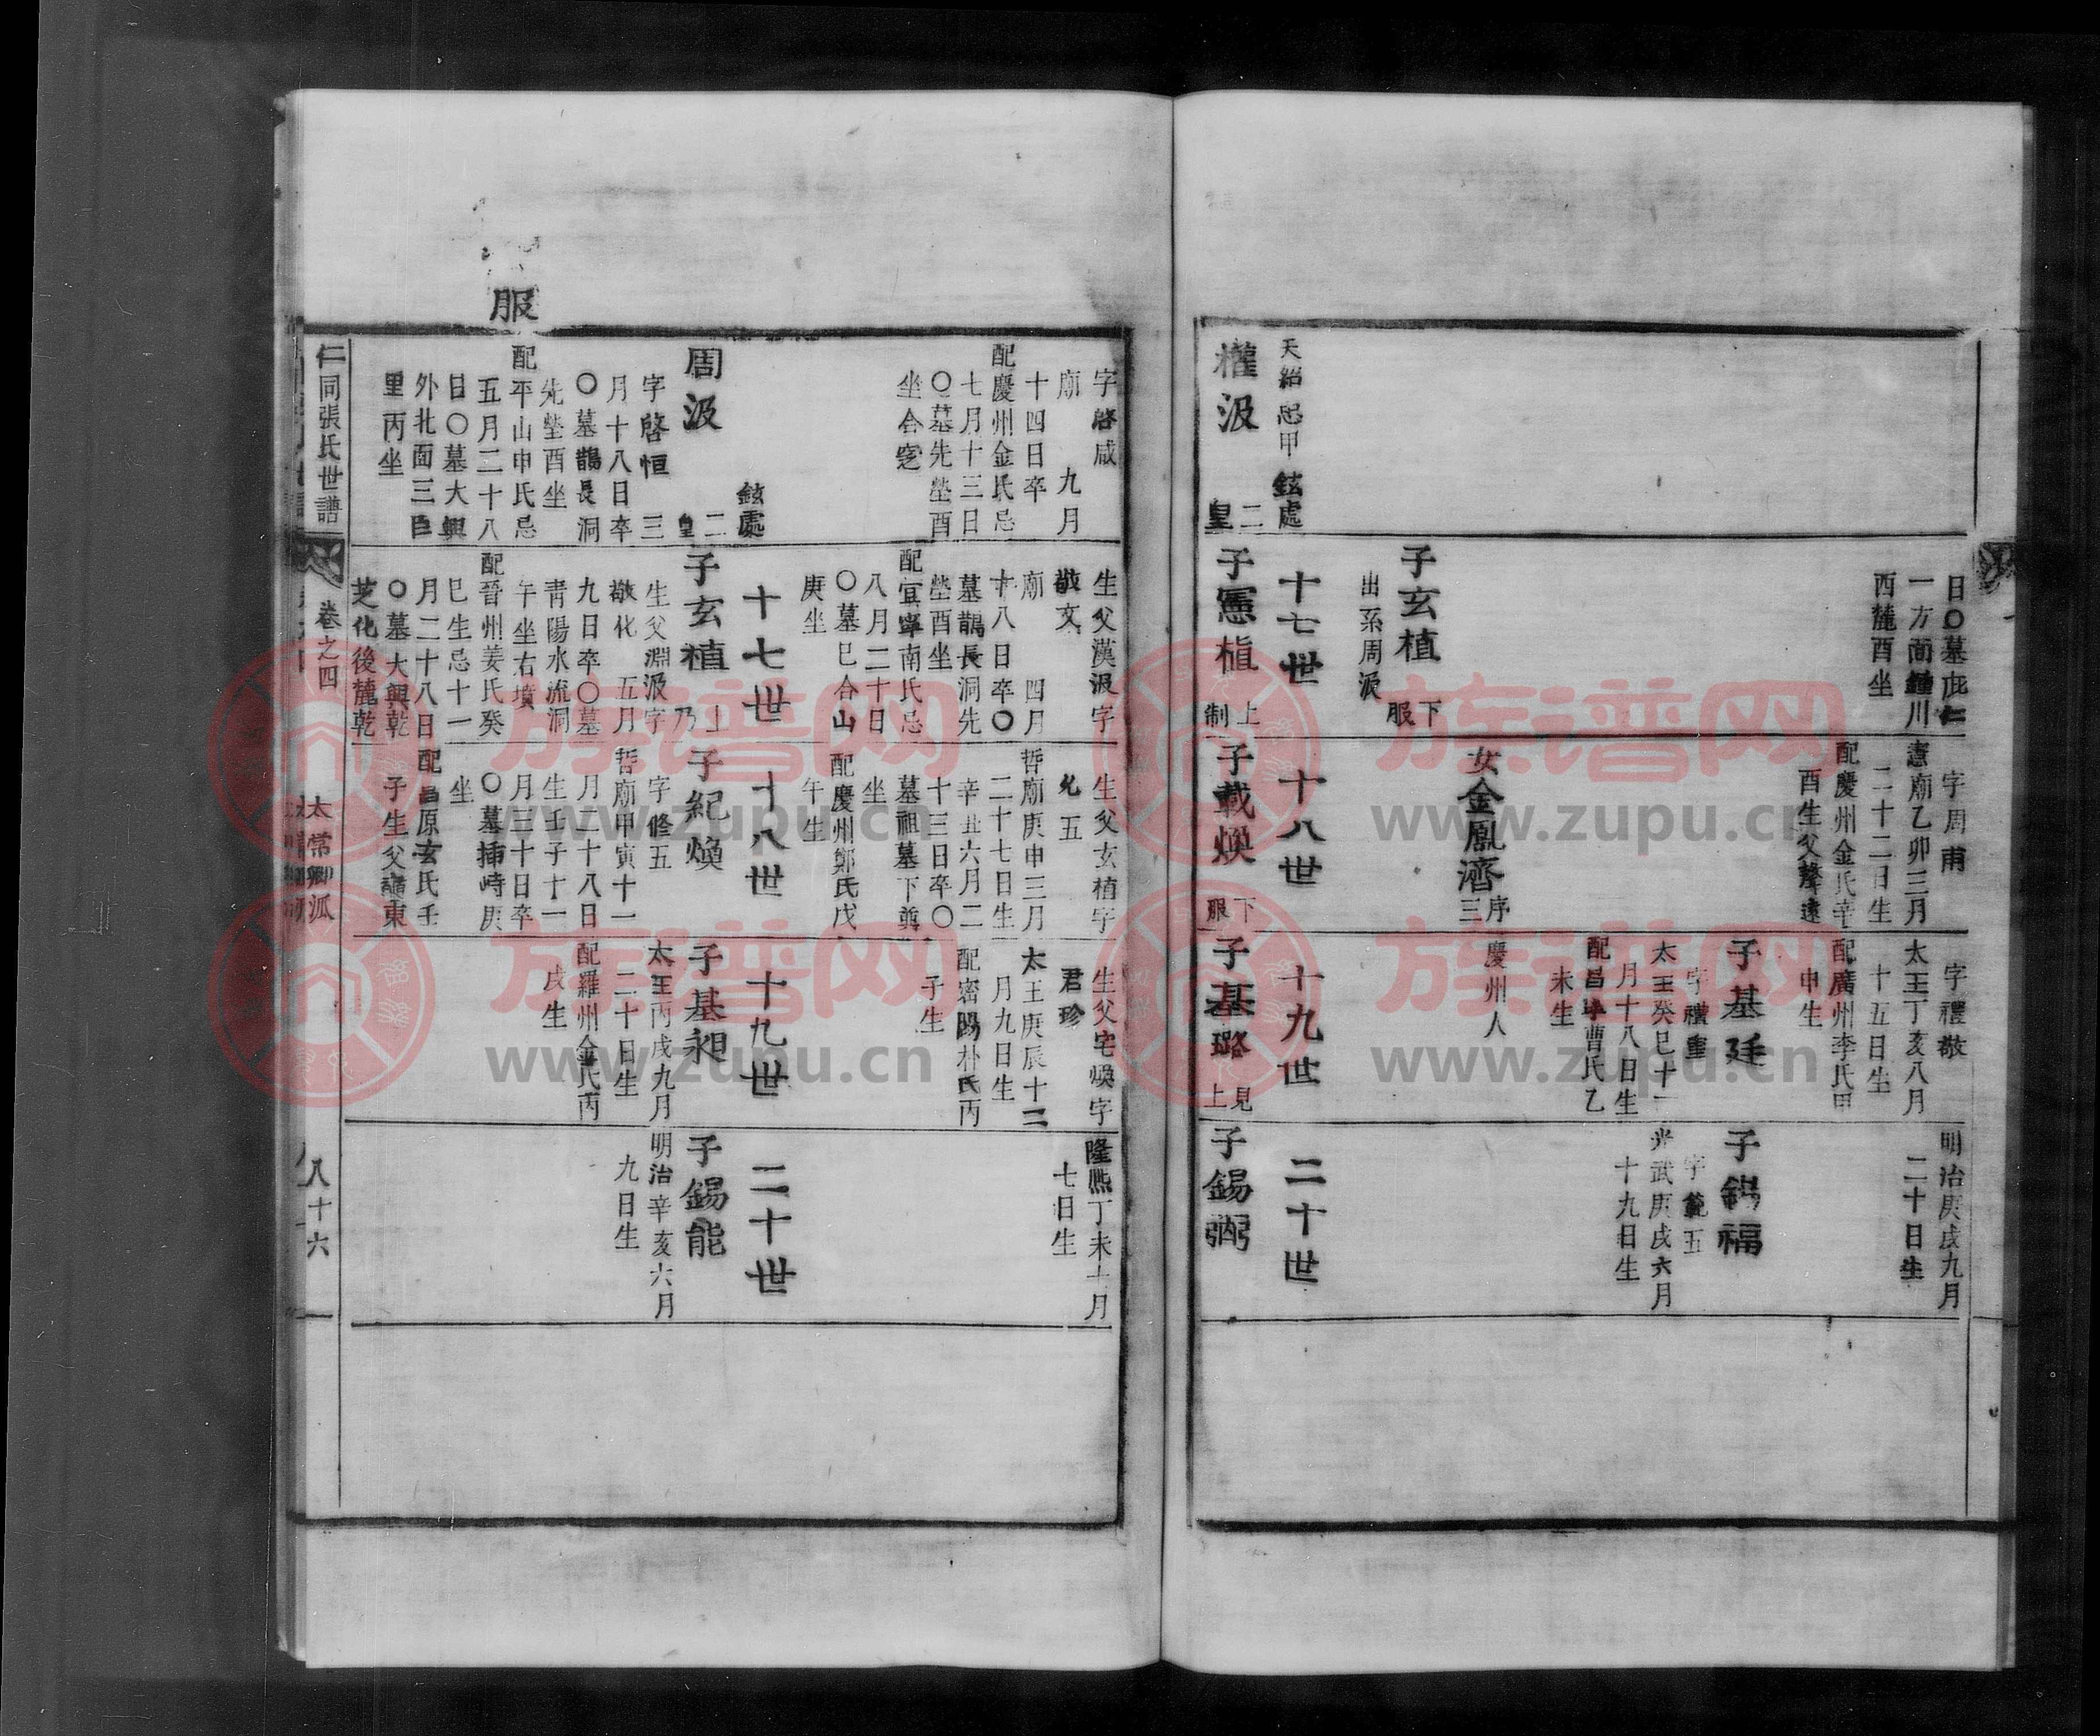 日〇墓庇仁
一方面鍾川
西麓酉坐
子玄植
下服
出系周汲
天鉛忌甲
鉉處
權汲
二皇
字周甫
憲廟乙卯三月
二十二日生
配慶州金氏辛
酉生父聲遠
女金鳳濟
序三
十七世
子憲植
上制
字禮敬
太王丁亥八月
十五日生
配廣州李氏甲
申生
子基廷
字禮重
太王癸巳十一
月十八日生
配昌寧曹氏乙
未生
慶州人
十八世
子載煥
下服
明治庚戌九月
二十日生
子錫福
字範五
光武庚戌六月
十九日生
十九世
子基璐
見上
二十世
子錫弼
字啓咸
廟 九月
十四日卒
配慶州金氏忌
七月十三日
〇墓先塋酉
坐合窆
鉉處
周汲
二皇
字啓恒 三
月十八日卒
〇墓鵲長洞
先塋酉坐
配平山申氏忌
五月二十八
日〇墓大興
外北面三巨
里丙坐
服
生父漢汲字
敬文
廟 四月
十八日卒〇
墓鵲長洞先
塋酉坐
配宜寧南氏忌
八月二十日
〇墓巳合山
庚坐
十七世
子玄植
上乃
生父淵汲字
敬化 五月
九日卒〇墓
靑陽水流洞
午坐右墳
配晉州姜氏癸
巳生忌十一
月二十八日
〇墓大興乾
芝化後麓乾
生父玄植字
允五
哲廟庚申三月
二十七日生
辛丑六月二
十三日卒〇
墓祖墓下艮
坐
配慶州鄭氏戊
午生
十八世
子紀煥
字修五
哲廟甲寅十一
月二十八日
生壬子十一
月三十日卒
〇墓揷峙庚
坐
配昌原玄氏壬
子生父東
生父宅煥字
君珍
太王庚辰十二
月九日生
配密陽朴氏丙
子生
十九世
子基昶
太王丙戌九月
二十日生
配羅州金氏丙
戌生
隆熙丁未十月
七日生
二十世
子錫能
明治辛亥六月
九日生
仁同張氏世譜
卷之四
太常卿派
八十六
族谱网
www.zupu.cn
族谱网
www.zupu.cn
族谱网
www.zupu.cn
族谱网
www.zupu.cn